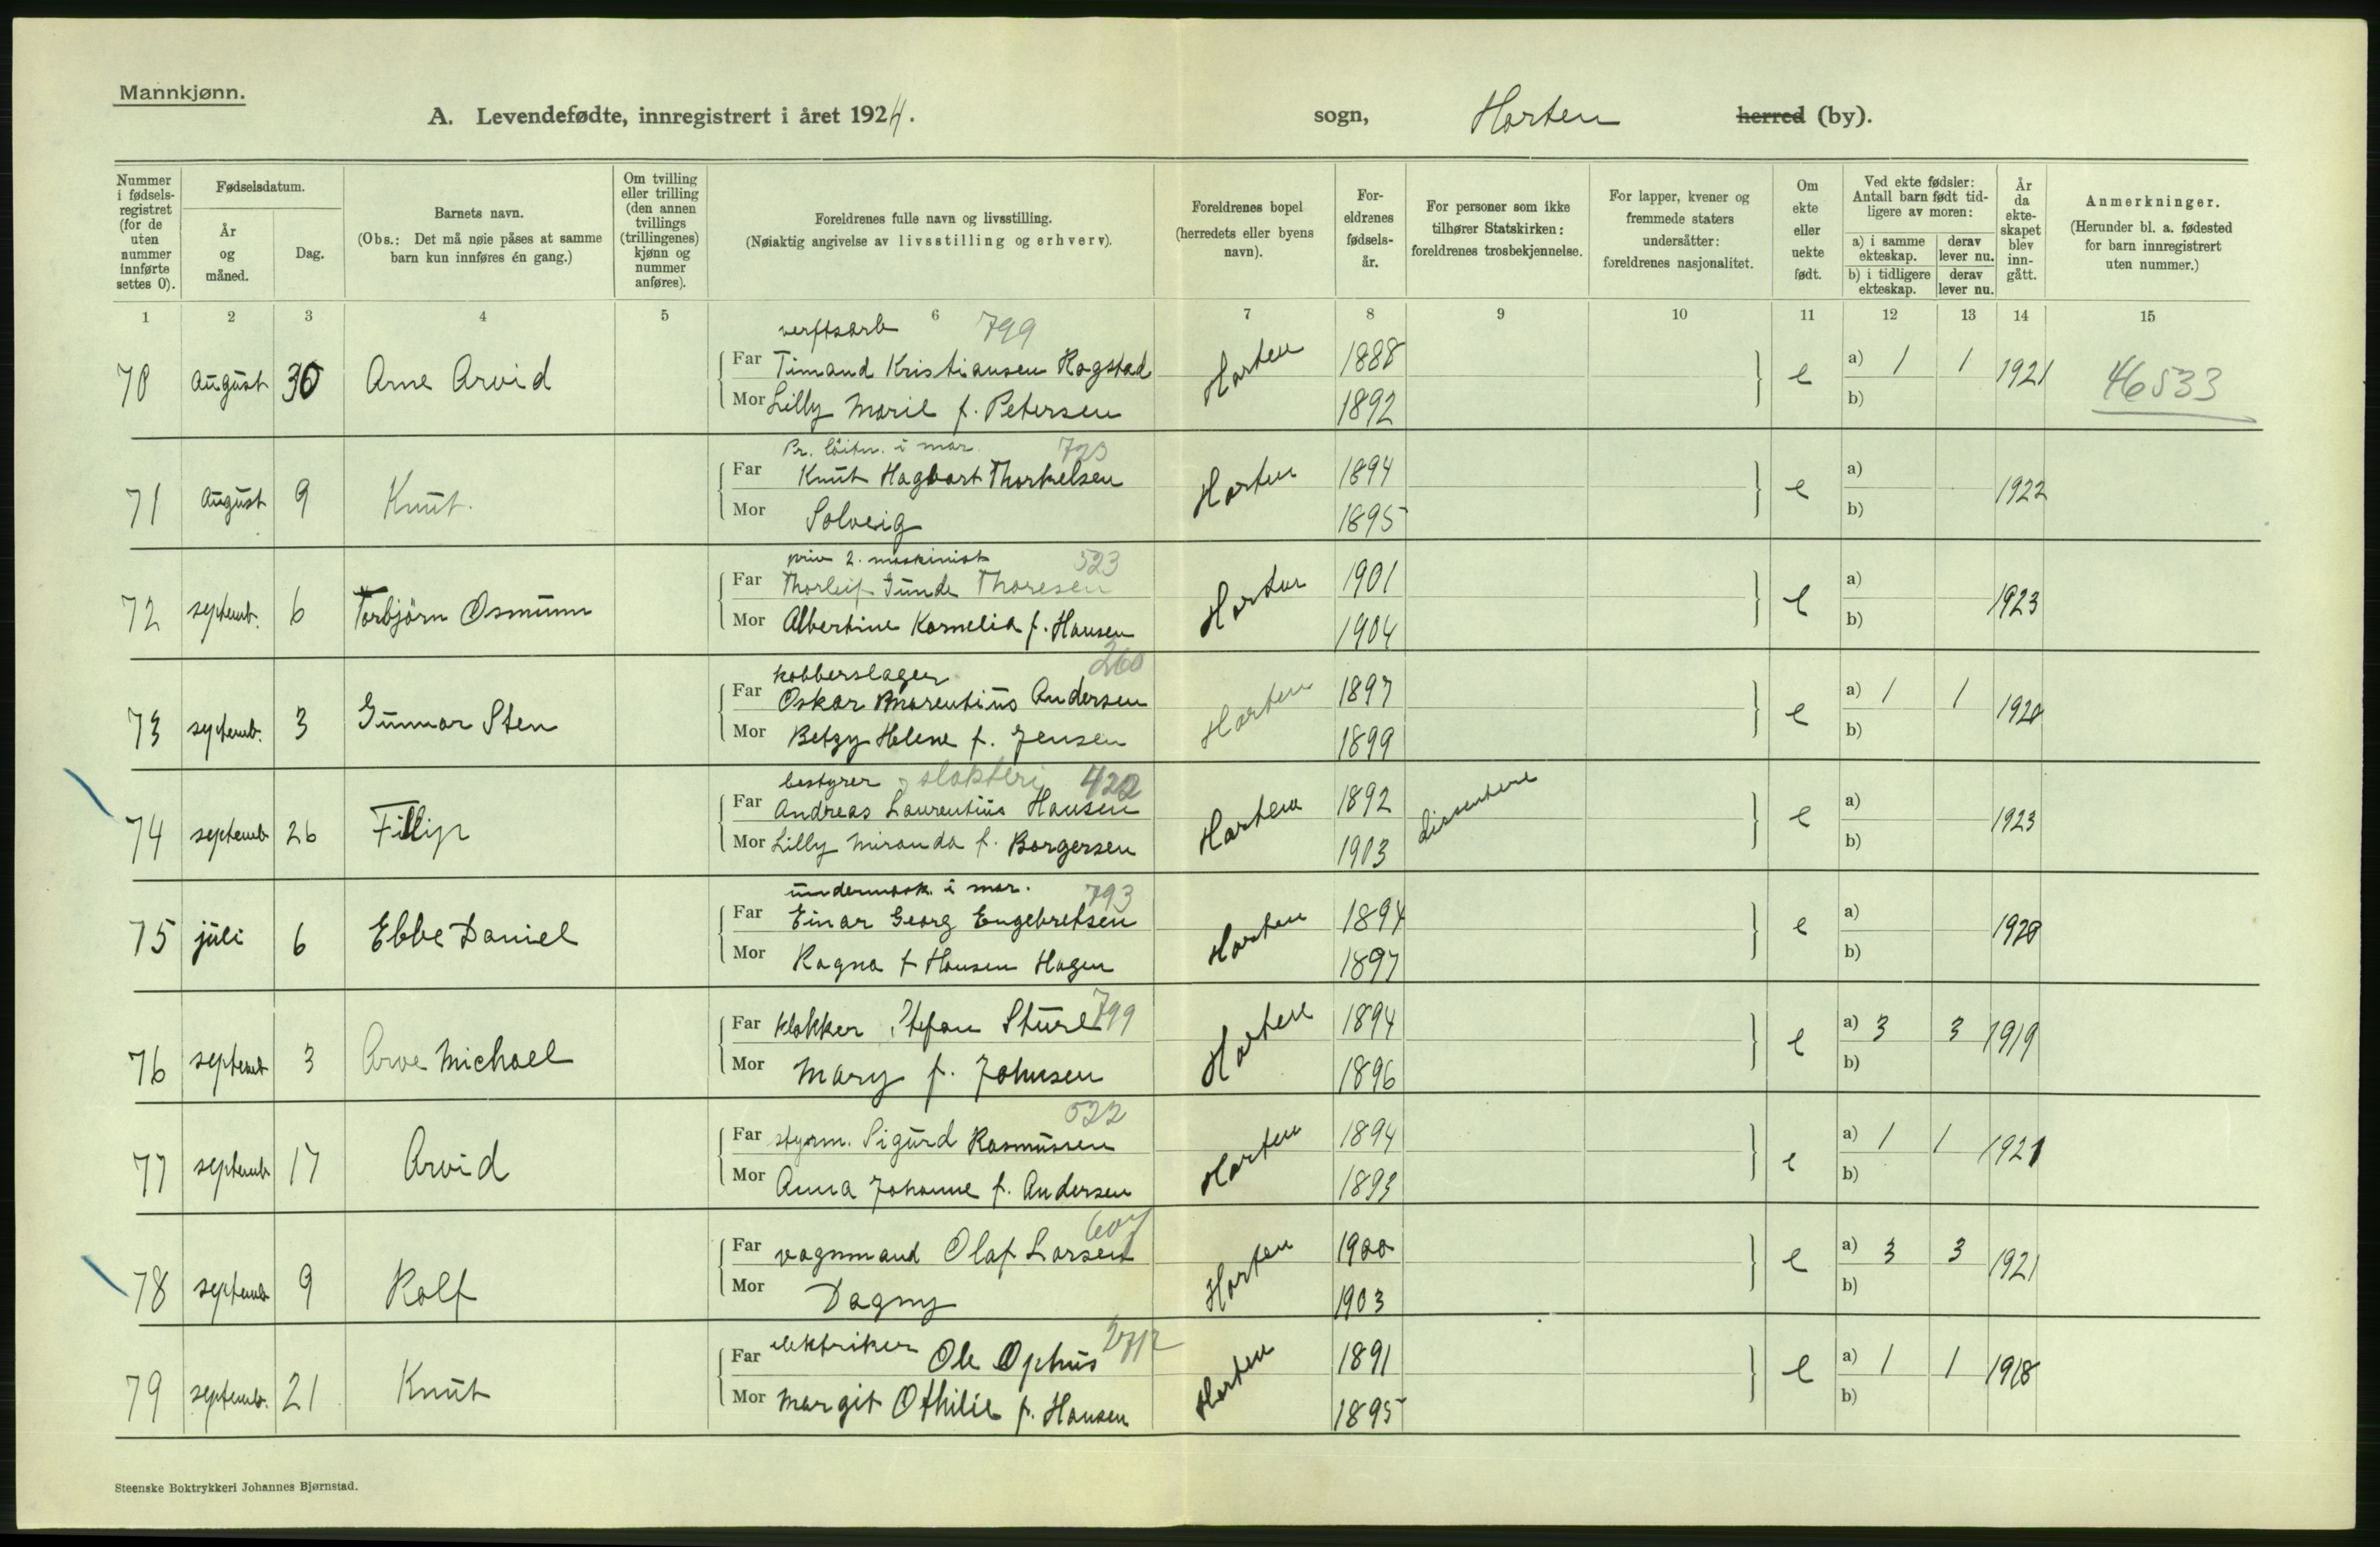 Mannkjønn.
A. Levendefødte, innregistrert i året 1924. sogn, Horten herred (by).
Nummer i fødsels-registret (for de uten nummer innførte settes 0).
Fødselsdatum.
År og måned.
Dag.
Barnets navn.
(Obs.: Det må nøie påses at samme barn kun innføres én gang.)
Om tvilling eller trilling (den annen tvillings (trillingenes) kjønn og nummer anføres).
Foreldrenes fulle navn og livsstilling.
(Nøiaktig angivelse av livsstilling og erhverv).
Foreldrenes bopel (herredets eller byens navn).
For-eldrenes fødsels-år.
For personer som ikke tilhører Statskirken: foreldrenes trosbekjennelse.
For lapper, kvener og fremmede staters undersåtter: foreldrenes nasjonalitet.
Om ekte eller uekte født.
Ved ekte fødsler: Antall barn født tid-ligere av moren:
a) i samme ekteskap. derav lever nu.
b) i tidligere ekteskap. derav lever nu.
År da ekte-skapet blev inn-gått.
Anmerkninger.
(Herunder bl. a. fødested for barn innregistrert uten nummer.)
1 2 3 4 5 6 7 8 9 10 11 12 13 14 15
verftsarb 799
70 August 30 Arne Arvid Far Timand Kristiansen Rogstad Horten 1888 e a) 1 1 1921 46533
Mor Lilly Marie f. Petersen 1892 b)
Pr. löitn. i mar.
71 August 9 Knut Far Knut Hagbart Thorkelsen Horten 1894 e a) 1922
Mor Solveig 1895 b)
priv 2. maskinist 523
72 septemb. 6 Torbjörn Osmunn Far Thorleif Gunde Thoresen Horten 1901 e a) 1923
Mor Albertine Kornelia f. Hansen 1904 b)
kobberslager 260
73 septemb. 3 Gunnar Sten Far Oskar Marentius Andersen Horten 1897 e a) 1 1 1920
Mor Betzy Helene f. Jensen 1899 b)
bestyrer slakteri 422
74 septemb 26 Fillip Far Andreas Laurentius Hansen Horten 1892 dissentere e a) 1923
Mor Lilly Miranda f. Borgersen 1903 b)
undermask. i mar. 793
75 juli 6 Ebbe Daniel Far Einar Georg Engebretsen Horten 1894 e a) 1920
Mor Ragna f Hansen Hagen 1897 b)
76 septemb 3 Arve Michael Far klokker Stefan Sture 799 Horten 1894 e a) 3 3 1919
Mor Mary f. Johnsen 1896 b)
522
77 septemb 17 Arvid Far styrm. Sigurd Rasmussen Horten 1894 e a) 1 1 1921
Mor Anna Johanne f. Andersen 1893 b)
607
78 septemb 9 Rolf Far vognmand Olaf Larsen Horten 1900 e a) 3 3 1921
Mor Dagny 1903 b)
79 septemb. 21 Knut Far elektriker Ole Ophus Horten 1891 e a) 1 1 1918
Mor Margit Othilie f. Hansen 1895 b)
Steenske Boktrykkeri Johannes Bjørnstad.